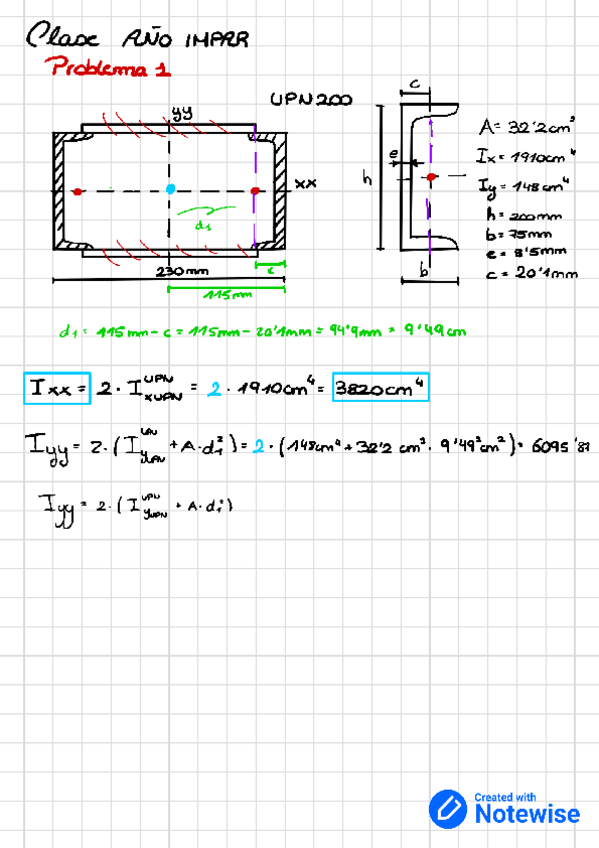 Clase AÑO IMPAR
Problema 1
UPN 200
yy
xx
d1
c
230mm
115mm
c
e
h
b
A= 32'2cm²
Ix= 1910cm⁴
Iy= 148cm⁴
h= 200mm
b= 75mm
e= 8'5mm
c= 20'1mm
d1= 115mm - c = 115mm - 20'1mm = 94'9mm = 9'49cm
Ixx = 2 · I xUPN UPN = 2 · 1910cm⁴ = 3820cm⁴
Iyy = 2 · (I yUPN UPN + A·d1²) = 2 · (148cm⁴ + 32'2 cm² · 9'49²cm²) = 6095'81
Iyy = 2 · (I yUPN UPN + A·d1²)
Created with
Notewise